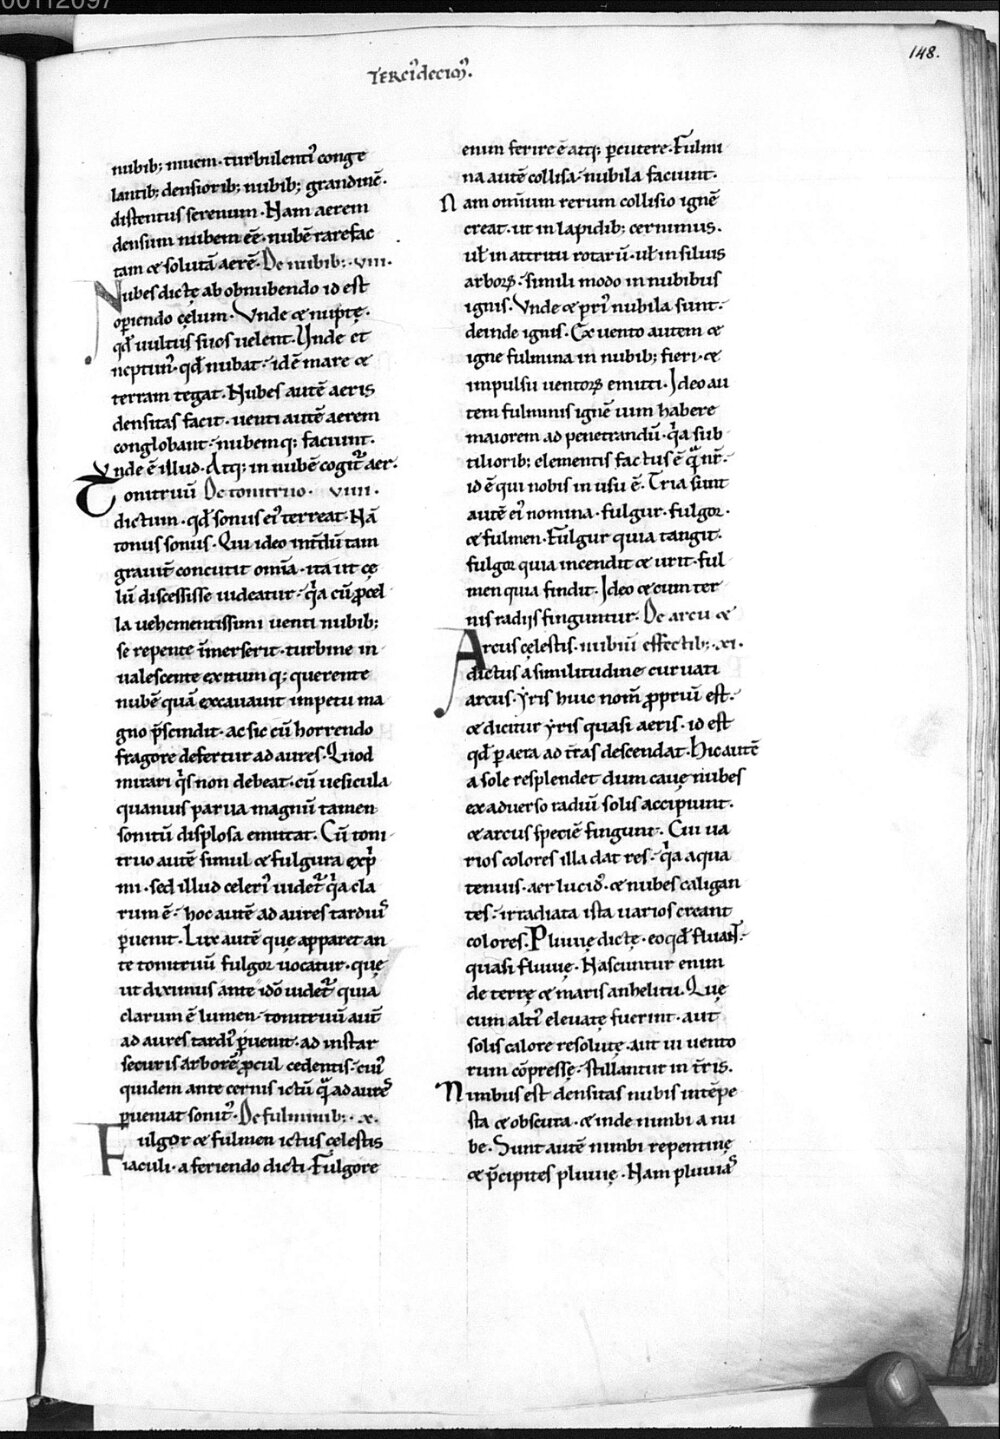 00112097
148.
TERCI᷒DECIM᷒.
nubib; niuem · turbulenti᷒ conge
lantib; densiorib; nubib; grandinē.
distentus serenum · Nam aerem
densum nubem eē · nubē rarefac
tam & solutā aerē · De nubib: · viii ·
Nubes dictę ab obnubendo id est
operiendo cęlum · Vnde & nuptę ·
qđ uultus suos uelent · Vnde et
neptun᷒ · qđ nubat · idē mare &
terram tegat · Nubes autē aeris
densitas facit · uenti autē aerem
conglobant · nubemq; faciunt ·
Vnde ē illud · Atq; in nubē cogit᷒ aer ·
Tonitruū De tonitruo · viiii ·
dictum · qđ sonus ei᷒ terreat · Nā
tonus sonus · Qui ideo int̄dū tam
grauit̄ concutit omīa · ita ut cę
lū discessisse uideatur · q̓a cū ꝓcel
la uehementissimi uenti nubib;
se repente īmerserit · turbine in
ualescente exitum q; querente
nubē quā excauauit impetu ma
gno p̄scindit · ac sic cū horrendo
fragore defertur ad aures · Quod
mirari q̓s non debeat · cū uesicula
quamuis parua magnū tamen
sonitū displosa emittat · Cū toni
truo autē simul & fulgura exp̓
mi · sed illud celeri᷒ uidet᷒ q̓a cla
rum ē · hoc autē ad aures tardius
ꝑuenit · Lux autē quę apparet an
te tonitruū fulgor uocatur · quę
ut diximus ante iđo uidet᷒ quia
clarum ē lumen · tonitruū aut̄
ad aures tardi᷒ ꝑuenit · ad instar
securis arborē ꝓcul cedentis · cui᷒
quidem ante cernis ictū q̄ ad aures
ꝑueniat sonit᷒ · De fulminib: · x ·
Fulgor & fulmen ictus cęlestis
iaculi · a feriendo dicti · Fulgore
enim ferire ē atq; ꝑcutere · Fulmi
na autē collisa · nubila faciunt ·
Nam omīum rerum collisio ignē
creat · ut in lapidib; cernimus ·
uł in attritu rotarū · uł in siluis
arborꝝ · simili modo in nubibus
ignis · Vnde & pri᷒ nubila sunt ·
deinde ignis · Ex uento autem &
igne fulmina in nubib; fieri · &
impulsu uentorꝝ emitti · Ideo au
tem fulminis ignē uim habere
maiorem ad penetrandū · q̓a sub
tiliorib; elementis factus ē q̄ nr̄ ·
id ē qui nobis in usu ē · Tria sunt
autē ei᷒ nomina · fulgur · fulgor ·
& fulmen · Fulgur quia tangit ·
fulgor quia incendit & urit · ful
men quia findit · Ideo & cum ter
nis radijs finguntur · De arcu &
Arcus cęlestis · nubiū effectib: · xi ·
dictus a similitudine curuati
arcus · yris huic nom̄ ꝓpriū est ·
& dicitur yris quasi aeris · id est
qđ ꝑ aera ad t̄ras descendat · Hic autē
a sole resplendet dum cauę nubes
ex aduerso radiū solis accipiunt ·
& arcus speciē fingunt · Cui ua
rios colores illa dat res · q̓a aqua
tenuis · aer lucid᷒ · & nubes caligan
tes · irradiata ista uarios creant
colores · Pluuię dictę · eo qđ fluant ·
quasi fluuię · Nascuntur enim
de terrę & maris anhelitu · Quę
cum alti᷒ eleuatę fuerint · aut
solis calore resolutę · aut ui uento
rum cōpressę · stillantur in t̄ris ·
Nimbus est densitas nubis intēpe
sta & obscura · & inde nimbi a nu
be · Sunt autē nimbi repentinę
& p̄cipites pluuię · Nam pluuias